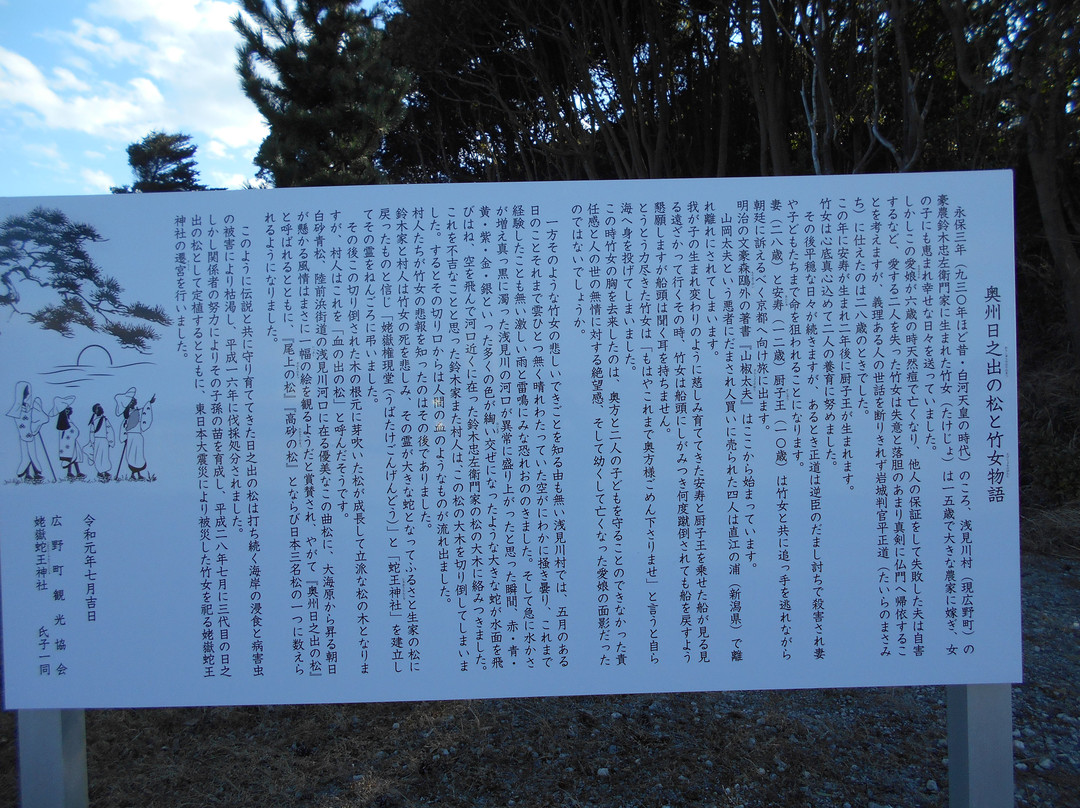 奥州日之出の松と竹女物語
永保三年（一九三〇年ほど昔・白河天皇の時代）のころ、浅見川村（現広野町）の
豪農鈴木忠左衛門家に生まれた竹女（たけじょ）は一五歳で大きな農家に嫁ぎ、女
の子にも恵まれ幸せな日々を送っていました。
しかしこの愛娘が六歳の時天然痘で亡くなり、他人の保証をして失敗した夫は自害
するなど、愛する二人を失った竹女は失意と落胆のあまり真剣に仏門へ帰依するこ
とを考えますが、義理ある人の世話を断りきれず岩城判官平正道（たいらのまさみ
ち）に仕えたのは二八歳のときでした。
この年に安寿が生まれ二年後に厨子王が生まれます。
竹女は心底真心込めて二人の養育に努めました。
その後平穏な日々が続きますが、あるとき正道は逆臣のだまし討ちで殺害され妻
や子どもたちまで命を狙われることになります。
妻（二八歳）と安寿（一二歳）厨子王（一〇歳）は竹女と共に追っ手を逃れながら
朝廷に訴えるべく京都へ向け旅に出ます。
明治の文豪森鴎外の著書『山椒太夫』はここから始まっています。
山岡太夫という悪者にだまされ人買いに売られた四人は直江の浦（新潟県）で離
れ離れにされてしまいます。
我が子の生まれ変わりのように慈しみ育ててきた安寿と厨子王を乗せた船が見る見
る遠ざかって行くその時、竹女は船頭にしがみつき何度蹴倒されても船を戻すよう
懇願しますが船頭は聞く耳を持ちません。
とうとう力尽きた竹女は「もはやこれまで奥方様ごめん下さりませ」と言うと自ら
海へ身を投げてしまいました。
この時竹女の胸を去来したのは、奥方と二人の子どもを守ることのできなかった責
任感と人の世の無情に対する絶望感、そして幼くして亡くなった愛娘の面影だった
のではないでしょうか。
一方そのような竹女の悲しいできごとを知る由も無い浅見川村では、五月のある
日のことそれまで雲ひとつ無く晴れわたっていた空がにわかに掻き曇り、これまで
経験したことも無い激しい雨と雷鳴にみな恐れおののきました。そして急に水かさ
が増え真っ黒に濁った浅見川の河口が異常に盛り上がったと思った瞬間、赤・青・
黄・紫・金・銀といった多くの色が綯い交ぜになったような大きな蛇が水面を飛
びはね、空を飛んで河口近くに在った鈴木忠左衛門家の松の大木に絡みつきました。
これを不吉なことと思った鈴木家また村人は、この松の大木を切り倒してしまいま
した。するとその切り口からは人間の血のようなものが流れ出ました。
村人たちが竹女の悲報を知ったのはその後でありました。
鈴木家と村人は竹女の死を悲しみ、その霊が大きな蛇となってふるさと生家の松に
戻ったものと信じ「姥嶽権現堂（うばたけごんげんどう）」と「蛇王神社」を建立し
てその霊をねんごろに弔いました。
その後この切り倒された木の根元に芽吹いた松が成長して立派な松の木となりま
すが、村人はこれを「血の出の松」と呼んだそうです。
白砂青松、陸前浜街道の浅見川河口に在る優美なこの曲松に、大海原から昇る朝日
が懸かる風情はまさに一幅の絵を観るようだと賞賛され、やがて『奥州日之出の松』
と呼ばれるとともに、『尾上の松』『高砂の松』とならび日本三名松の一つに数えら
れるようになりました。
このように伝説と共に守り育ててきた日之出の松は打ち続く海岸の浸食と病害虫
の被害により枯渇し、平成一六年に伐採処分されました。
しかし関係者の努力によりその子孫の苗を育成し、平成二八年七月に三代目の日之
出の松として定植するとともに、東日本大震災により被災した竹女を祀る姥嶽蛇王
神社の遷宮を行いました。
令和元年七月吉日
広野町観光協会
姥嶽蛇王神社 氏子一同